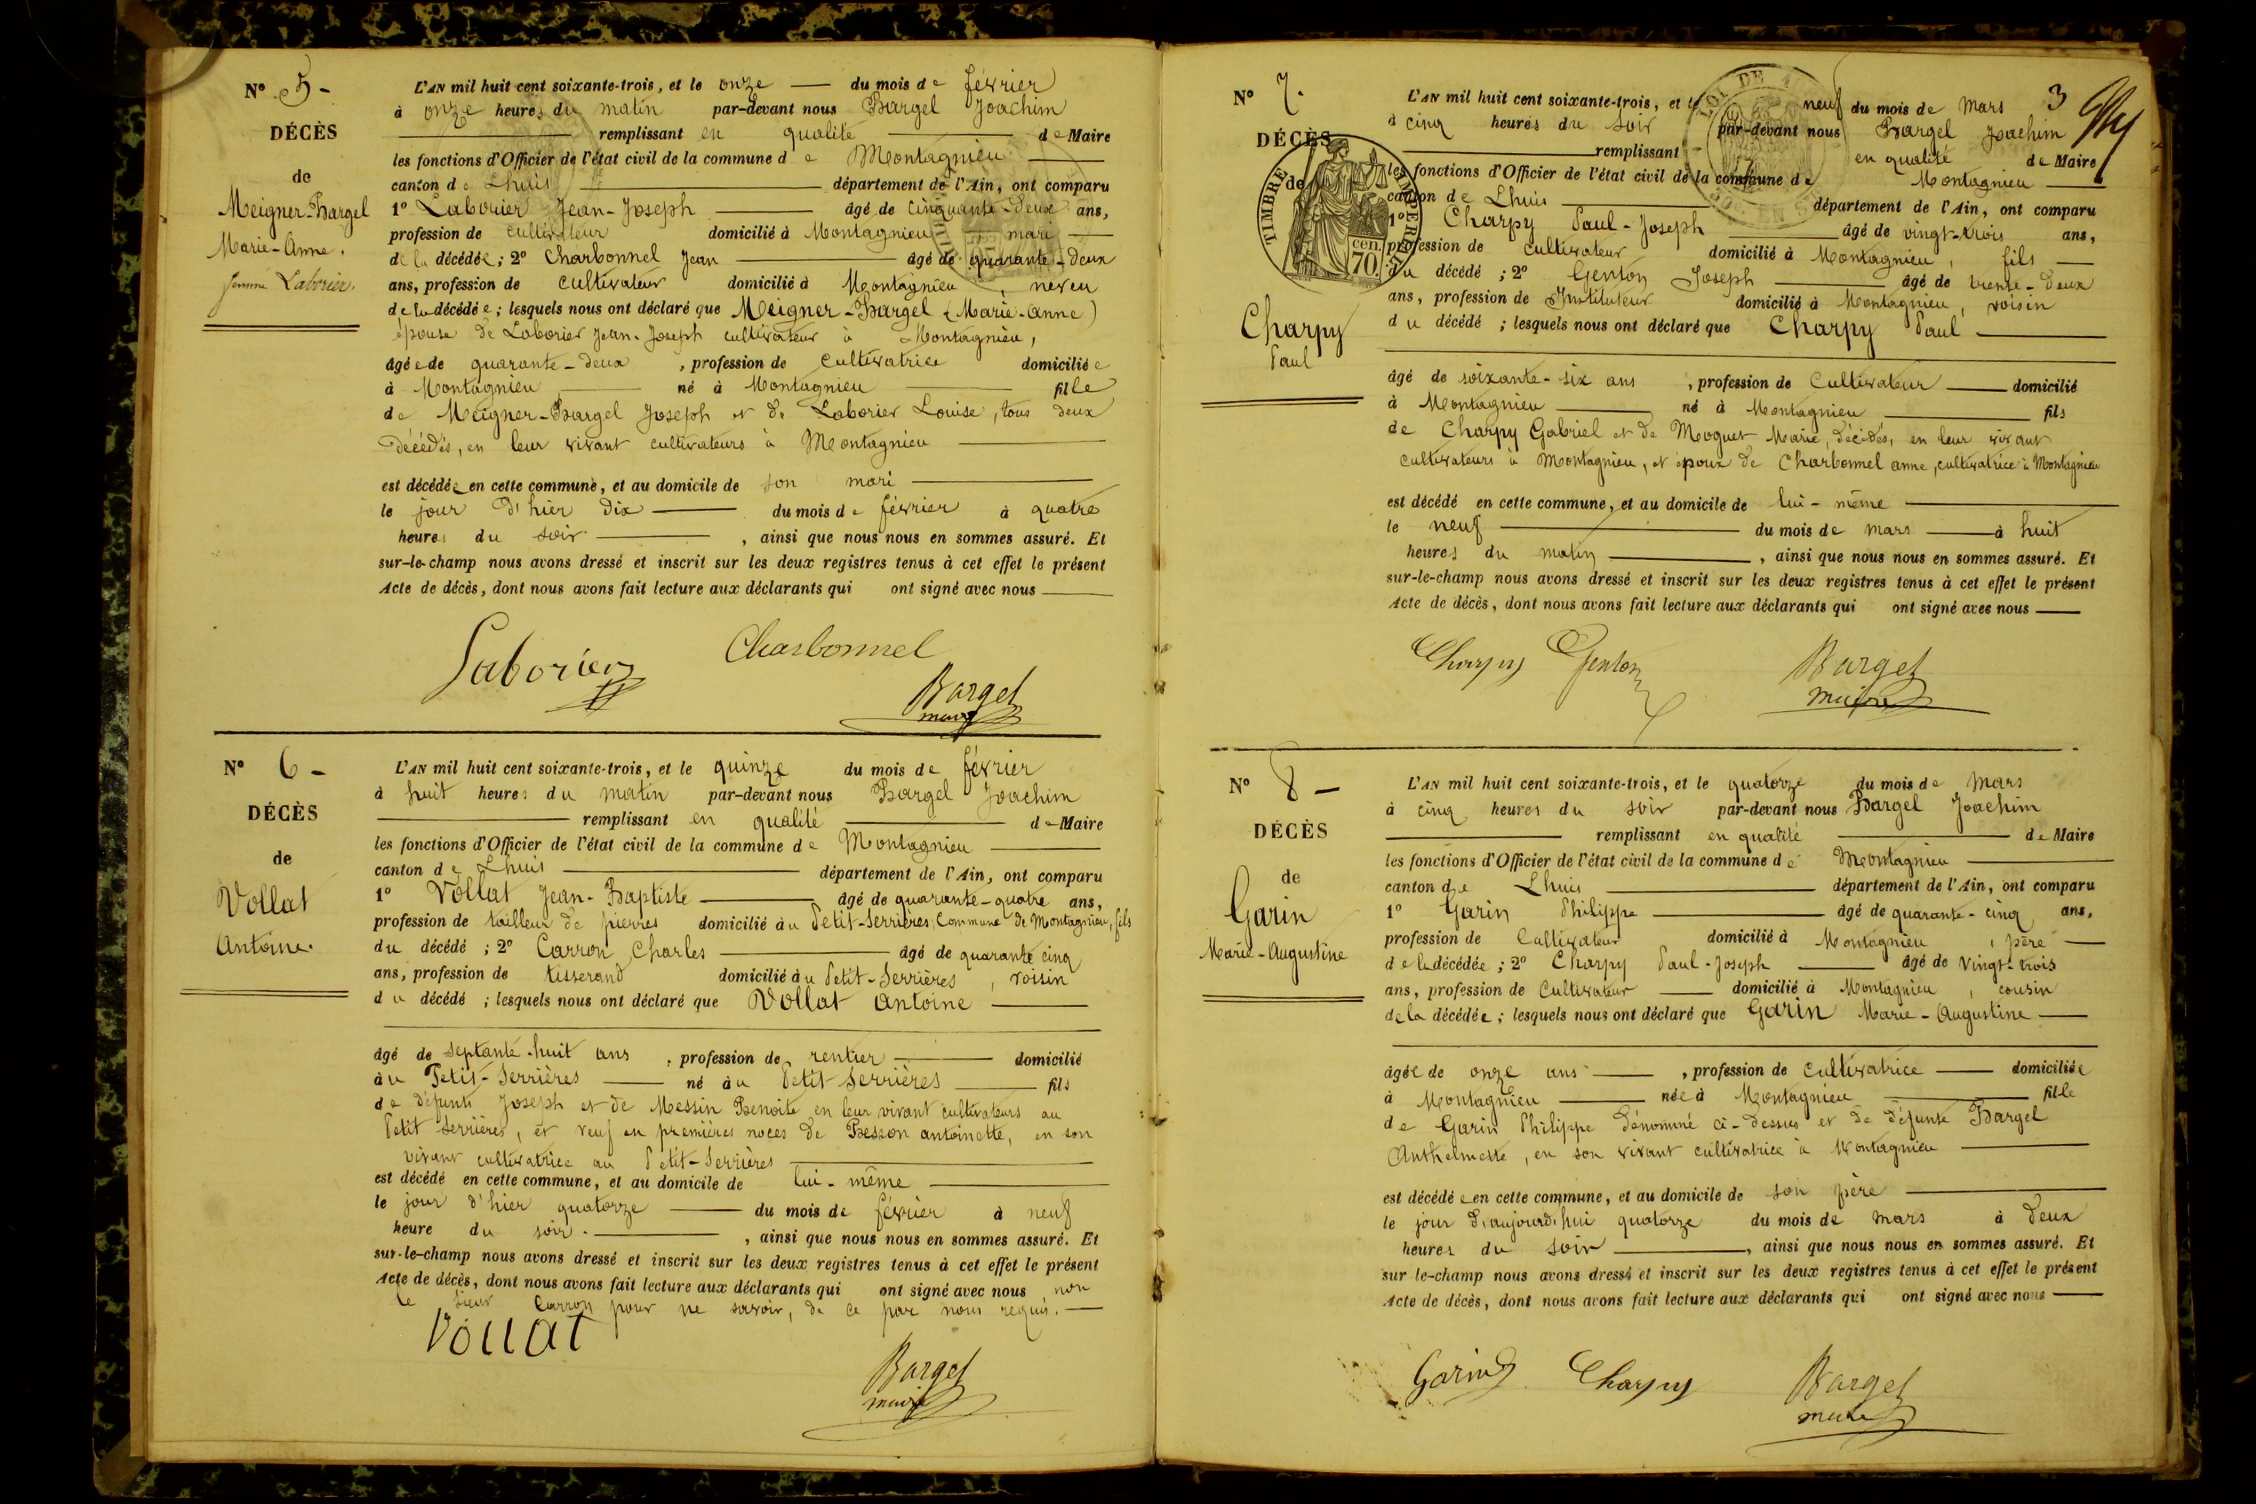 N° 5 -
DÉCÈS
de
Meigner-Bargel
Marie-Anne.
femme Laborier
L'AN mil huit cent soixante-trois, et le onze du mois de février
à onze heures du matin par-devant nous Bargel Joachim
remplissant en qualité de Maire
les fonctions d'Officier de l'état civil de la commune de Montagnieu
canton de Lhuis département de l'Ain, ont comparu
1° Laborier Jean-Joseph âgé de cinquante-deux ans,
profession de cultivateur domicilié à Montagnieu mari
de la décédée; 2° Charbonnel Jean âgé de quarante-deux
ans, profession de cultivateur domicilié à Montagnieu, neveu
de la décédée; lesquels nous ont déclaré que Meigner-Bargel (Marie-Anne)
épouse de Laborier Jean-Joseph cultivateur à Montagnieu,
âgée de quarante-deux, profession de cultivatrice domiciliée
à Montagnieu né à Montagnieu fille
de Meigner-Bargel Joseph et de Laborier Louise, tous deux
décédés, en leur vivant cultivateurs à Montagnieu
est décédée en cette commune, et au domicile de son mari
le jour d'hier dix du mois de février à quatre
heures du soir, ainsi que nous nous en sommes assuré. Et
sur-le-champ nous avons dressé et inscrit sur les deux registres tenus à cet effet le présent
Acte de décès, dont nous avons fait lecture aux déclarants qui ont signé avec nous
Laborier Charbonnel
Bargel
maire
N° 6 -
DÉCÈS
de
Vollat
Antoine.
L'AN mil huit cent soixante-trois, et le quinze du mois de février
à huit heures du matin par-devant nous Bargel Joachim
remplissant en qualité de Maire
les fonctions d'Officier de l'état civil de la commune de Montagnieu
canton de Lhuis département de l'Ain, ont comparu
1° Vollat Jean-Baptiste âgé de quarante-quatre ans,
profession de tailleur de pierres domicilié au Petit-Serrières, commune de Montagnieu, fils
du décédé; 2° Carron Charles âgé de quarante cinq
ans, profession de tisserand domicilié au Petit-Serrières, voisin
du décédé; lesquels nous ont déclaré que Vollat Antoine
âgé de septante-huit ans, profession de rentier domicilié
au Petit-Serrières né au Petit Serrières fils
de défunts Joseph et de Messin Benoite en leur vivant cultivateurs au
Petit Serrières, et veuf en premières noces de Besson antoinette, en son
vivant cultivatrice au Petit-Serrières
est décédé en cette commune, et au domicile de lui-même
le jour d'hier quatorze du mois de février à neuf
heure du soir., ainsi que nous nous en sommes assuré. Et
sur-le-champ nous avons dressé et inscrit sur les deux registres tenus à cet effet le présent
Acte de décès, dont nous avons fait lecture aux déclarants qui ont signé avec nous non
le sieur Carron pour ne savoir, de ce par nous requis.
Vollat
Bargel
maire
N° 7.
DÉCÈS
de
Charpy
Paul
TIMBRE IMPERIAL
70 cen.
3
L'AN mil huit cent soixante-trois, et le neuf du mois de mars
à cinq heures du soir par-devant nous Bargel Joachim
remplissant en qualité de Maire
les fonctions d'Officier de l'état civil de la commune de Montagnieu
canton de Lhuis département de l'Ain, ont comparu
1° Charpy Paul-Joseph âgé de vingt-trois ans,
profession de cultivateur domicilié à Montagnieu, fils
du décédé; 2° Genton Joseph âgé de trente-deux
ans, profession de Instituteur domicilié à Montagnieu, voisin
du décédé; lesquels nous ont déclaré que Charpy Paul
âgé de soixante-six ans, profession de Cultivateur domicilié
à Montagnieu né à Montagnieu fils
de Charpy Gabriel et de Moguet Marie, décédés, en leur vivant
cultivateurs à Montagnieu, et époux de Charbonnel anne, cultivatrice à Montagnieu
est décédé en cette commune, et au domicile de lui-même
le neuf du mois de mars à huit
heures du matin, ainsi que nous nous en sommes assuré. Et
sur-le-champ nous avons dressé et inscrit sur les deux registres tenus à cet effet le présent
Acte de décès, dont nous avons fait lecture aux déclarants qui ont signé avec nous
Charpy Genton Bargel
maire
N° 8 -
DÉCÈS
de
Garin
Marie-Augustine
L'AN mil huit cent soixante-trois, et le quatorze du mois de mars
à cinq heures du soir par-devant nous Bargel Joachim
remplissant en qualité de Maire
les fonctions d'Officier de l'état civil de la commune de Montagnieu
canton de Lhuis département de l'Ain, ont comparu
1° Garin Philippe âgé de quarante-cinq ans,
profession de Cultivateur domicilié à Montagnieu, père
de la décédée; 2° Charpy Paul-Joseph âgé de vingt-trois
ans, profession de Cultivateur domicilié à Montagnieu, cousin
de la décédée; lesquels nous ont déclaré que Garin Marie-Augustine
âgée de onze ans, profession de cultivatrice domiciliée
à Montagnieu née à Montagnieu fille
de Garin Philippe dénommé ci-dessus et de défunte Bargel
Anthelmette, en son vivant cultivatrice à Montagnieu
est décédée en cette commune, et au domicile de son père
le jour d'aujourd'hui quatorze du mois de mars à deux
heures du soir, ainsi que nous nous en sommes assuré. Et
sur le-champ nous avons dressé et inscrit sur les deux registres tenus à cet effet le présent
Acte de décès, dont nous avons fait lecture aux déclarants qui ont signé avec nous
Garin Charpy Bargel
maire